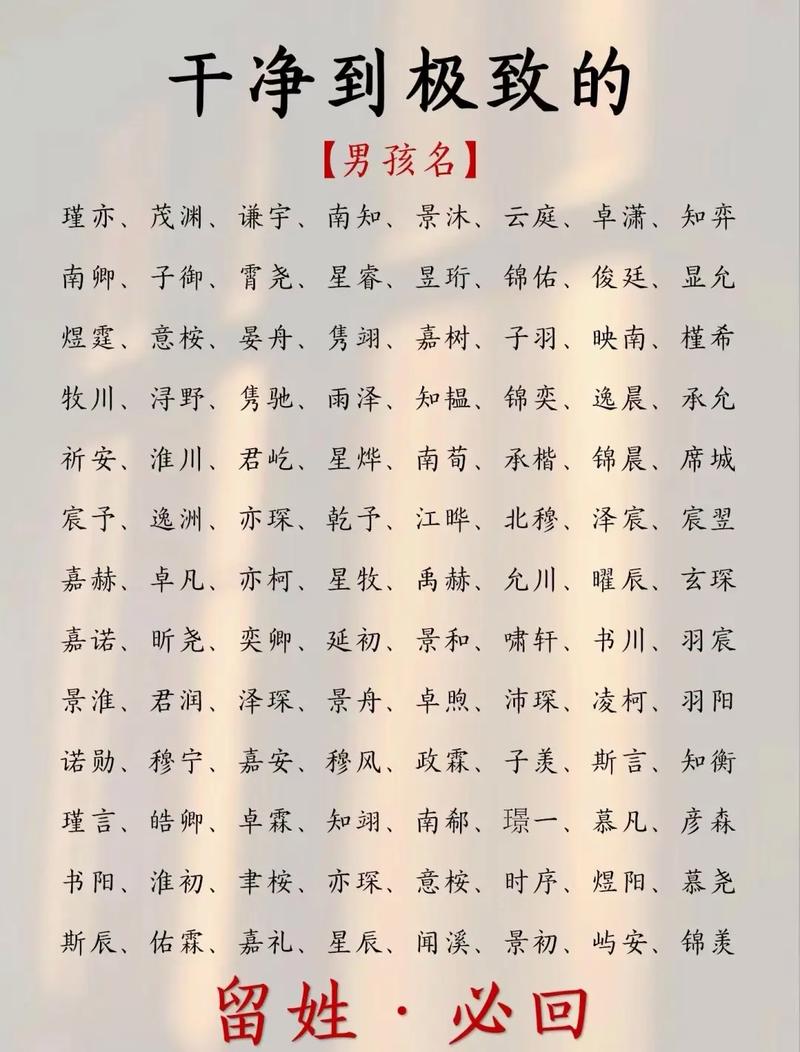 干净到极致的
【男孩名】
瑾亦、茂渊、谦宇、南知、景沐、云庭、卓潇、知弈
南卿、子御、霄尧、星睿、昱珩、锦佑、俊廷、显允
煜霆、意桉、晏舟、隽翊、嘉树、子羽、映南、槿希
牧川、浔野、隽驰、雨泽、知韫、锦奕、逸晨、承允
祈安、淮川、君屹、星烨、南荀、承楷、锦晨、席城
宸予、逸洲、亦琛、乾予、江晔、北穆、泽宸、宸翌
嘉赫、卓凡、亦柯、星牧、禹赫、允川、曜辰、玄琛
嘉诺、昕尧、奕卿、延初、景和、啸轩、书川、羽宸
景淮、君润、泽琛、景舟、卓煦、沛琛、凌柯、羽阳
诺勋、穆宁、嘉安、穆风、政霖、子羡、斯言、知衡
瑾言、皓卿、卓霖、知翊、南郗、璟一、慕凡、彦森
书阳、淮初、聿桉、亦琛、意桉、时序、煜阳、慕尧
斯辰、佑霖、嘉礼、星辰、闻溪、景初、屿安、锦羡
留姓·必回